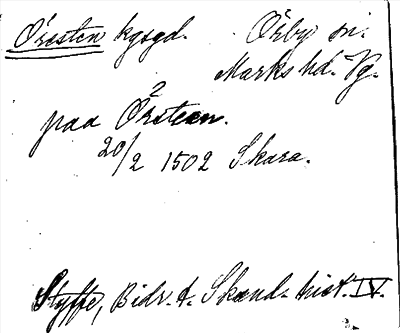 Öresten kgsgd. Örby sn.
Marks hd. Vg.
paa Örsteen.
20/2 1502 Skara.
Styffe, Bidr. t. Skand. hist. IV.